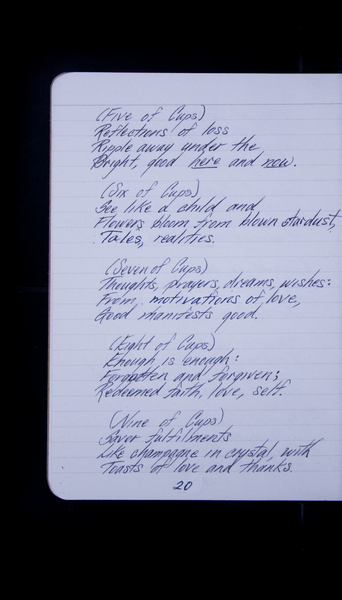 (Five of Cups)
Reflections of loss
Ripple away under the
Bright, good here and now.
(Six of Cups)
See like a child and
Flowers bloom from blown stardust,
Tales, realities.
(Seven of Cups)
Thoughts, prayers, dreams, wishes:
From motivations of love,
Good manifests good.
(Eight of Cups)
Enough is enough:
Forgotten and forgiven;
Redeemed faith, love, self.
(Nine of Cups)
Savor fulfillments
Like champagne in crystal, with
Toasts of love and thanks.
20